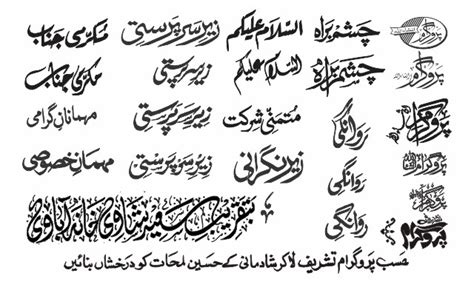 پروگرام چشم براہ السلام علیکم زیر سرپرستی مکرمی جناب
پروگرام چشم براہ السلام علیکم زیر سرپرستی مکرمی جناب
پروگرام روانگی متمنّی شرکت زیر سرپرستی مہمانانِ گرامی
پروگرام روانگی زیر نگرانی زیر سرپرستی مہمانِ خصوصی
پروگرام
پروگرام روانگی بتقریب سعید شادی خانہ آبادی
حسب پروگرام تشریف لا کر شادمانی کے حسین لمحات کو درخشاں بنائیں